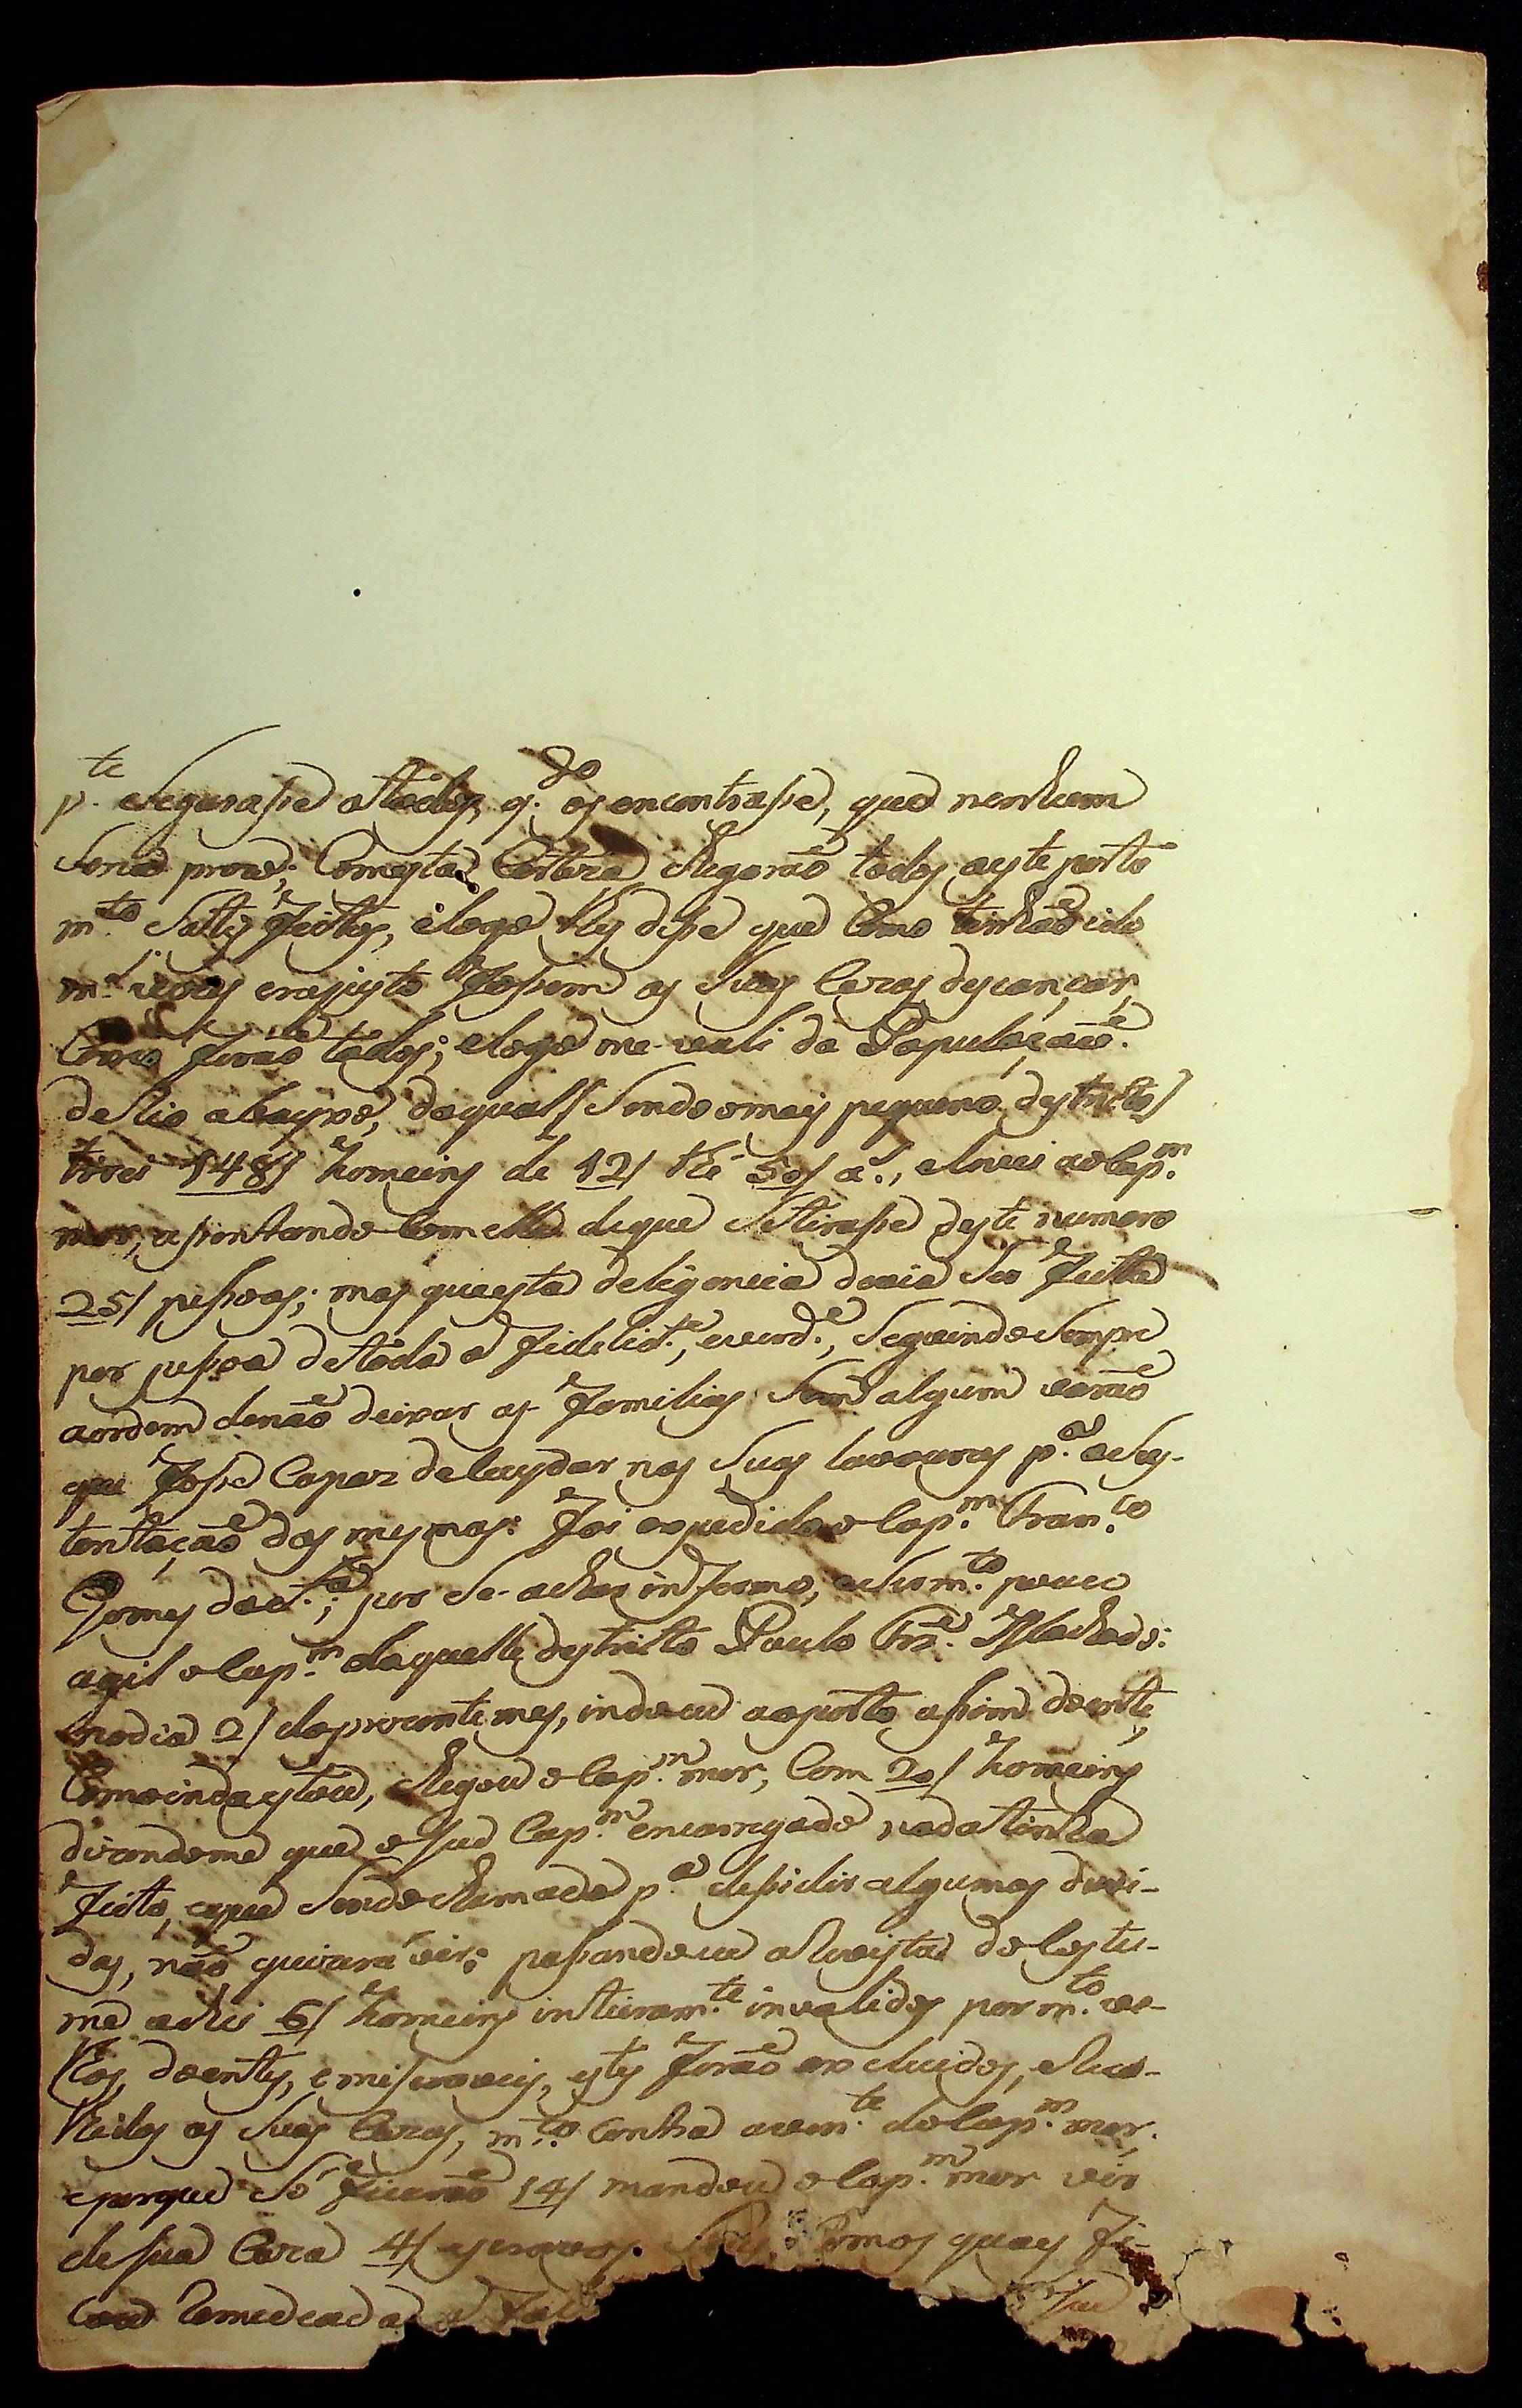 p.te Segurasse a todos, q.do os encontrasse, que nenhum
Seria prezo; Com esta Certeza chegarão todos aeste porto
m.to Satisfeitos, e logo lhes disse que Como tinhão ido
m.tas vezes era justo fossem as Suas Cazas descançar,
Como forão todos; e logo me-vali da Populaçaõ.
de Rio abayxo, da qual / Sendo o mais pequeno destricto /
tirei 148/ homeins de 12/ thé 50/ a.s, e lovei ao Cap.m
mor, assentando Com elle de que Se tirasse deste numero
25/ pessoas; mas que esta deligencia devia Ser feita
por pessoa de toda a fidelid.e, e verd.e, Seguindo Sempre
a ordem de não deixar as familias Sem algum varaõ
que fosse Capaz de Cuydar nas Suas lavouras p.a a Sus-
tentaçaõ das mesmas: foi expedido o Cap.m Fran.co
Gomes da C.ta; por Se-achar infermo, e Ser m.to pouco
agil o Cap.m daquelle destricto Paulo Frz.e Machado:
no dia 2/ do prezente mes, indo eu ao porto assim doente,
Como inda estou, chegou o Cap.m mor, Com 20/ homeins
dizendome que o Seu Cap.m encarregado nada tinha
feito, e que Sendo chamado p.a dissidir algumas duvi-
das, não quizera vir; passando eu a Revista do Costu-
me achei 6/ homeins inteiram.te invalidos por m.to ve-
lhos, doentes, e miseraveis, estes forão excluidos, e Reco-
lhidos as Suas Cazas, m.to Contra a vont.e do Cap.m mor,
e porque Só ficarão 14/ mandou o Cap.m mor vir
de sua Caza 4/ escravos Seus, Com os quais fi-
cou Remedeada a fal